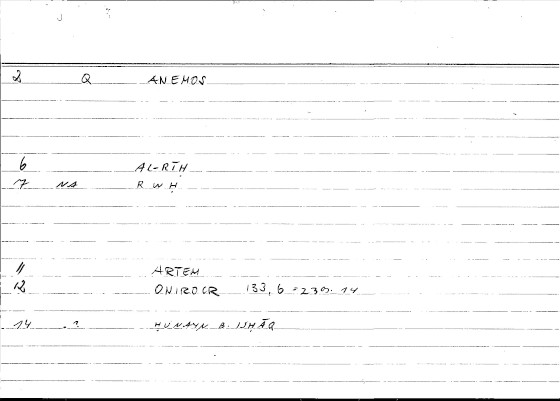 2 Q ANEMOS
6 AL-RĪḤ
7 NA RWḤ
11 ARTEM
12 ONIROCR 133, 6 = 239. 14
14 ? ḤUNAYN B. ISḤĀQ